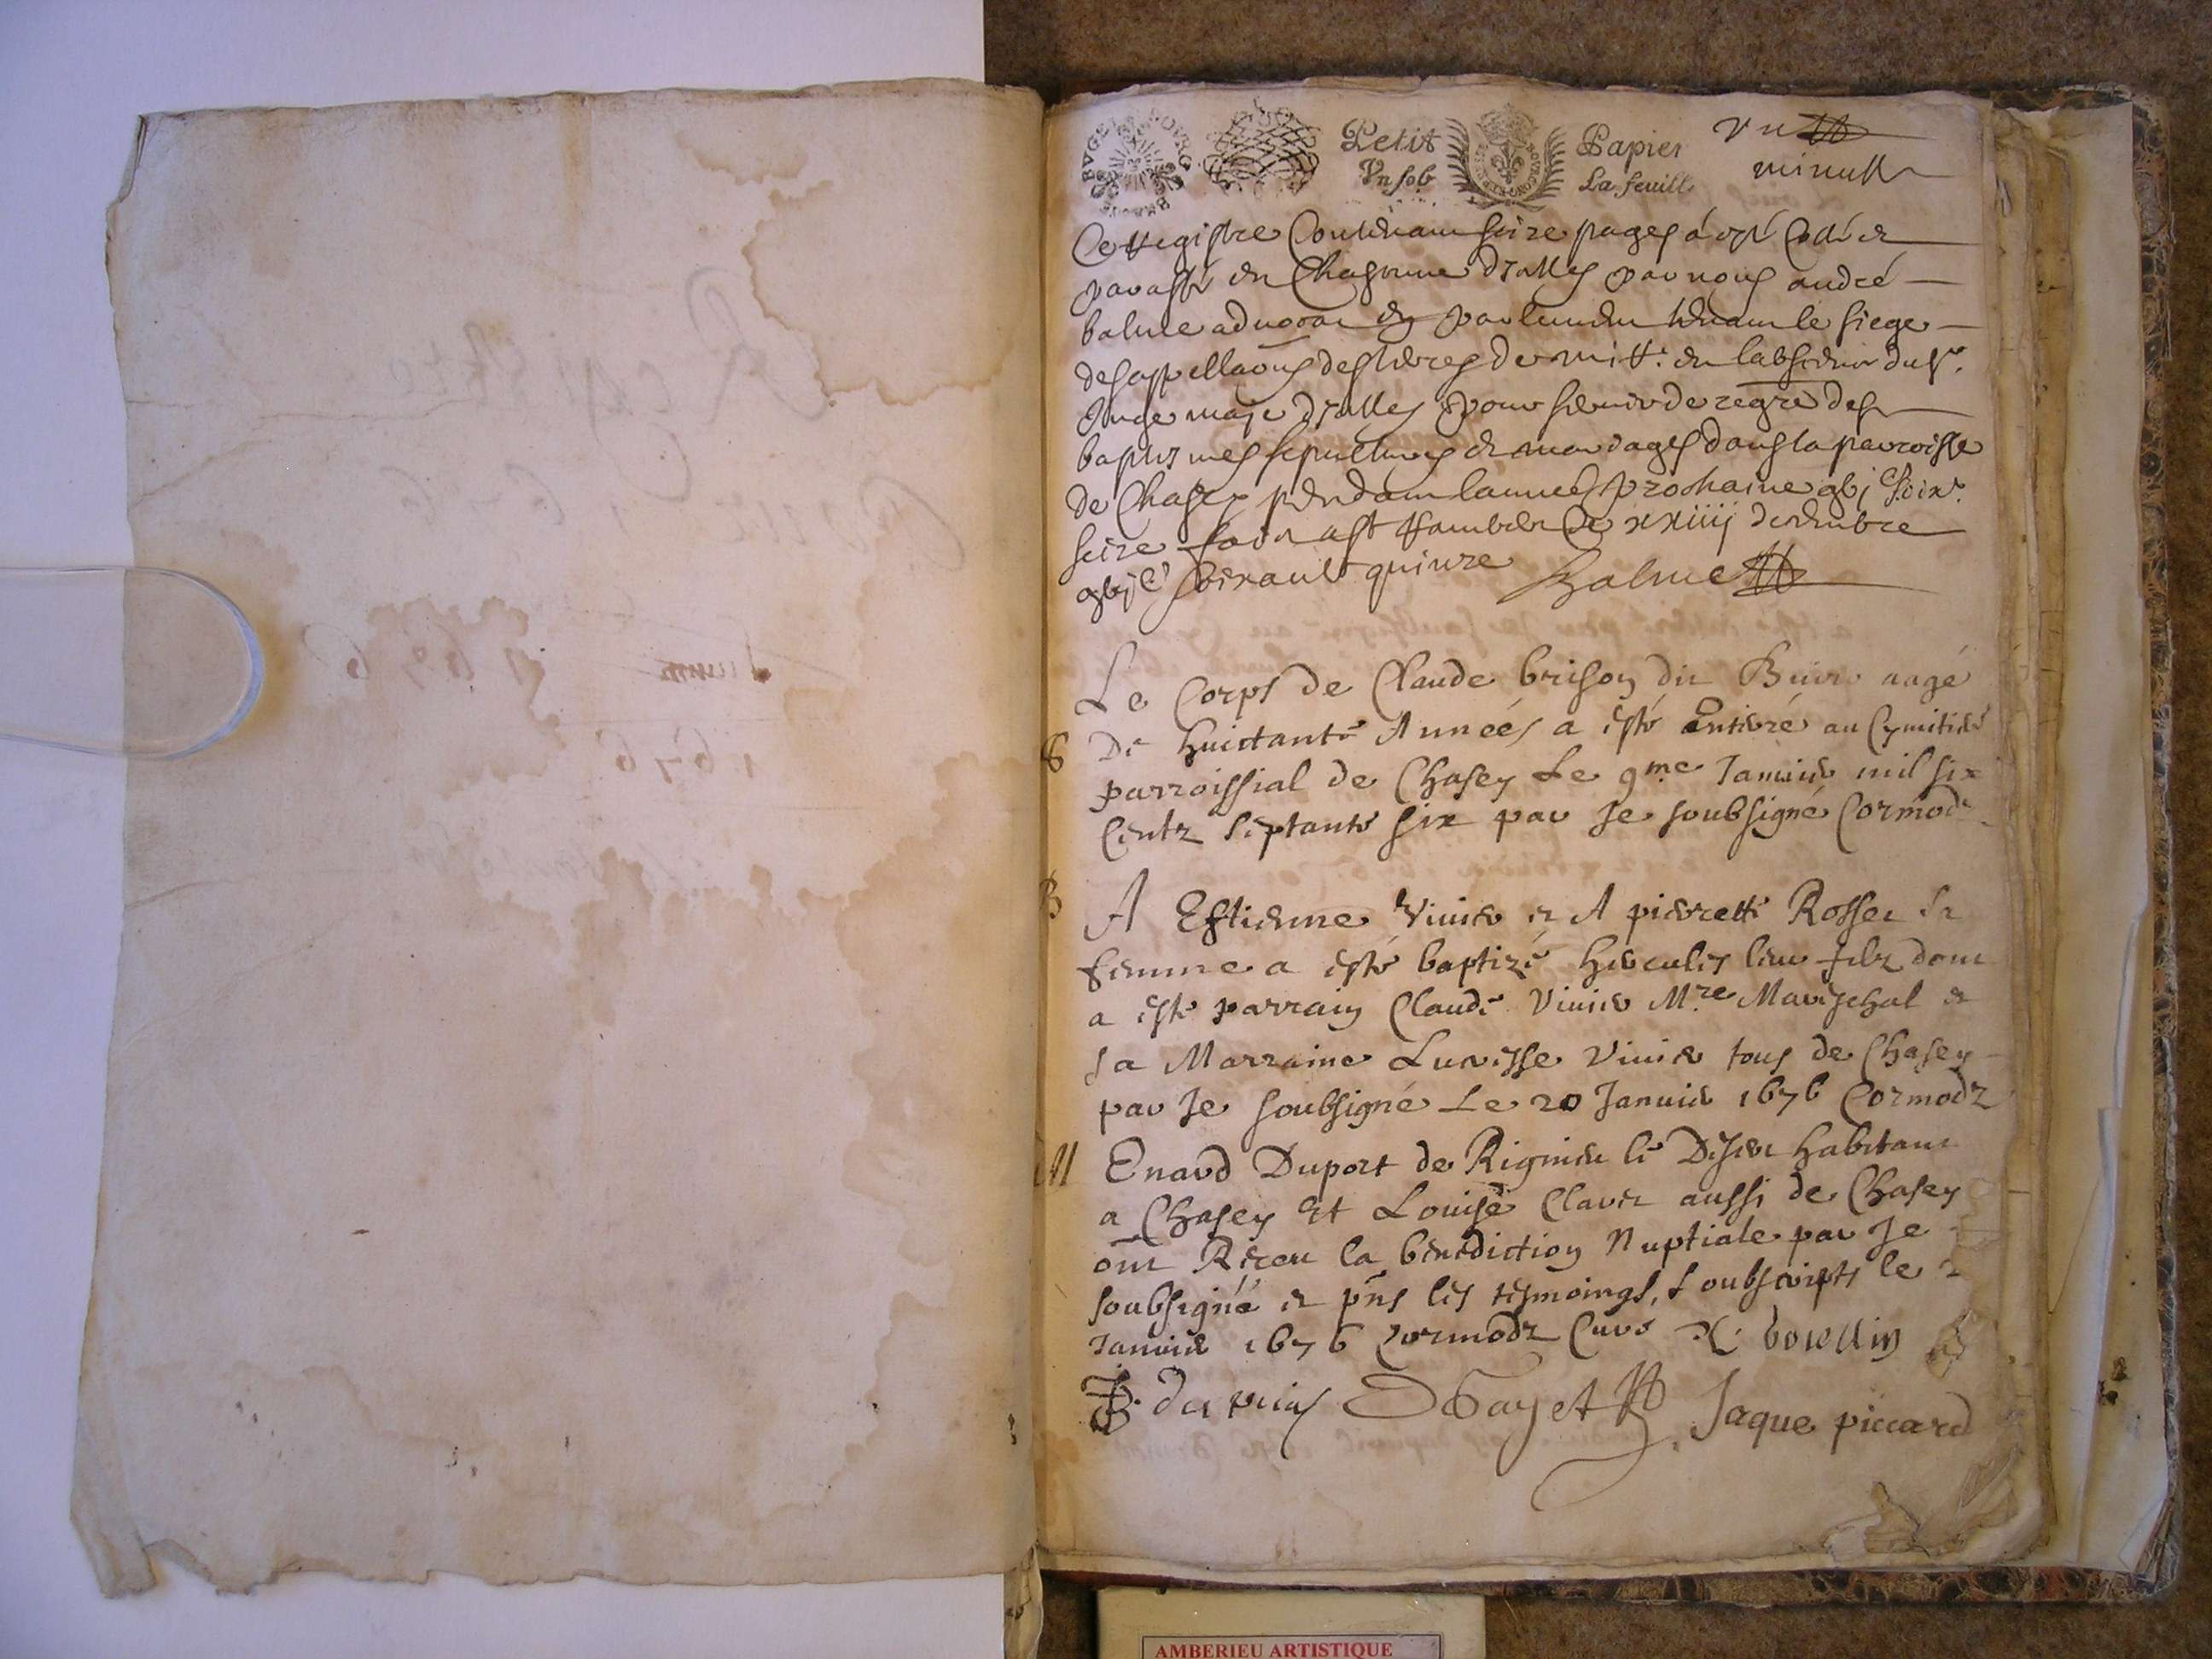 Petit Papier vn
Vn sob La feuille minutte
Ce Registre Contenant seize pages a esté Cotté et
paraffé en Chascune d'Icelles par nous andré
balme advocat en parlement tenant le siege
des appellaons des terres de en labsence du Sr.
Juge maje d'Icelles pour servir de regre des
baptesmes sepultures et mariages dans la parroisse
de Chasey pendant lannee prochaine gbjc soixte
seize faict a St Rambert Ce xxiiij decembre
gbjc soixante quinze Balme
Le Corps de Claude brison dit aagé
S De huictante Années a esté Enterré au Cymitiere
parroissial de Chasey Le 9me Januier mil six
Centz septante six par Je soubsigné Cormodz
B A Estienne Viuier et A pierrette Rosset sa
femme a esté baptizé hercules leur filz dont
a esté parrain Claude Viuier Mre Mareschal et
sa Marraine Viuier tous de Chasey
par Je soubsigné Le 20 Januier 1676 Cormodz
M Enard Duport de Rignieu le Desert habitant
a Chasey Et Louise Claret aussi de Chasey
ont Receu la benediction Nuptiale par Je
soubsigné et pns les tesmoings, soubscripts le 2
Januier 1676 Cormodz Curé
Jaque piccard
1676
AMBERIEU ARTISTIQUE